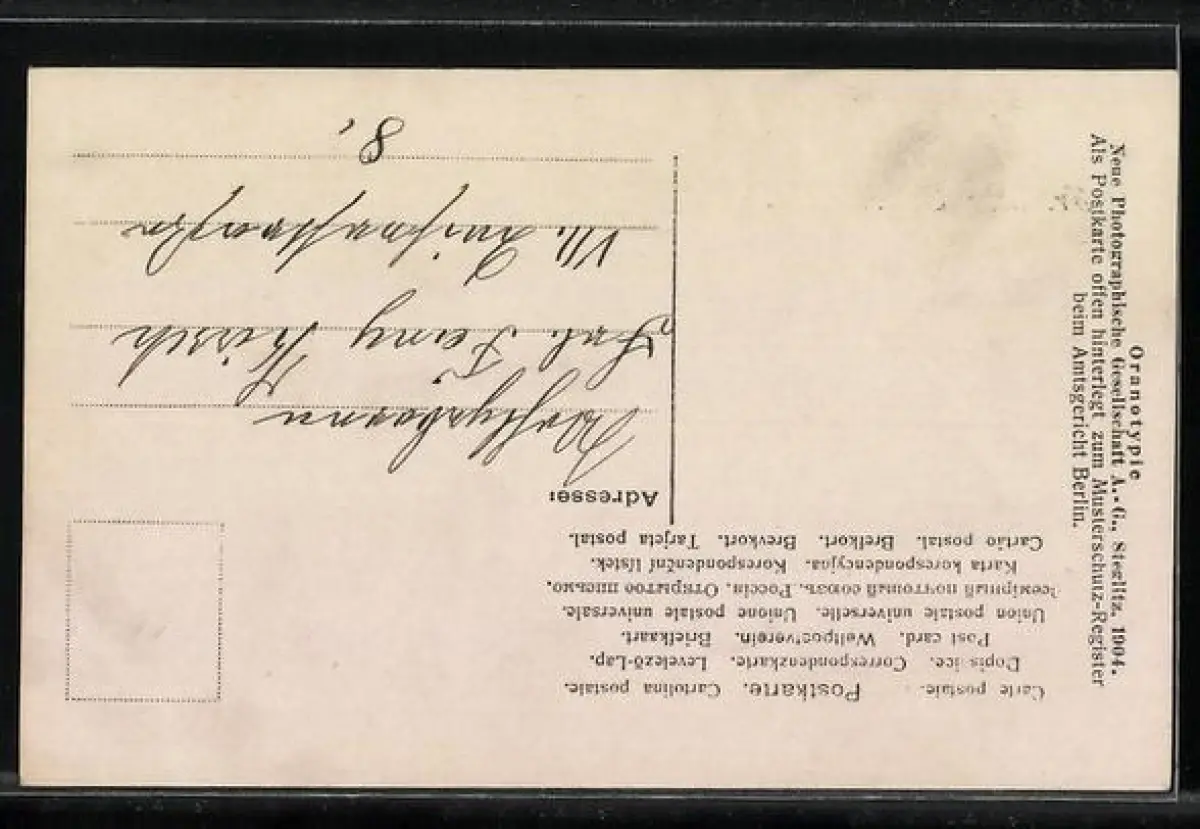 Carte postale. Postkarte. Cartolina postale.
Dopis ice. Correspondenzkarte. Levelező-Lap.
Post card. Weltpostverein. Briefkaart.
Union postale universelle. Unione postale universale.
Всемірный почтовый союзъ. Россія. Открытое письмо.
Karta korespondencyjna. Korespondenční lístek.
Cartão postal. Brefkort. Brevkort. Tarjeta postal.
Adresse:
Wohlgeboren
Frl. Fany Hirsch
VII.
8,
Oranotypie
Neue Photographische Gesellschaft A.-G., Steglitz. 1904.
Als Postkarte offen hinterlegt zum Musterschutz-Register
beim Amtsgericht Berlin.